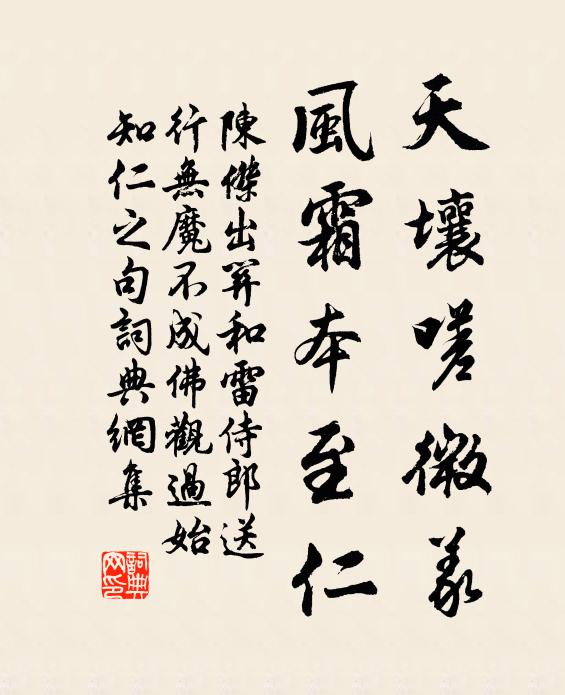 天壤嗟微義
風霜本至仁
陳傑出筭和雷侍郎送
行無魔不成佛觀過始
知仁之句詞典網集
詞典网印